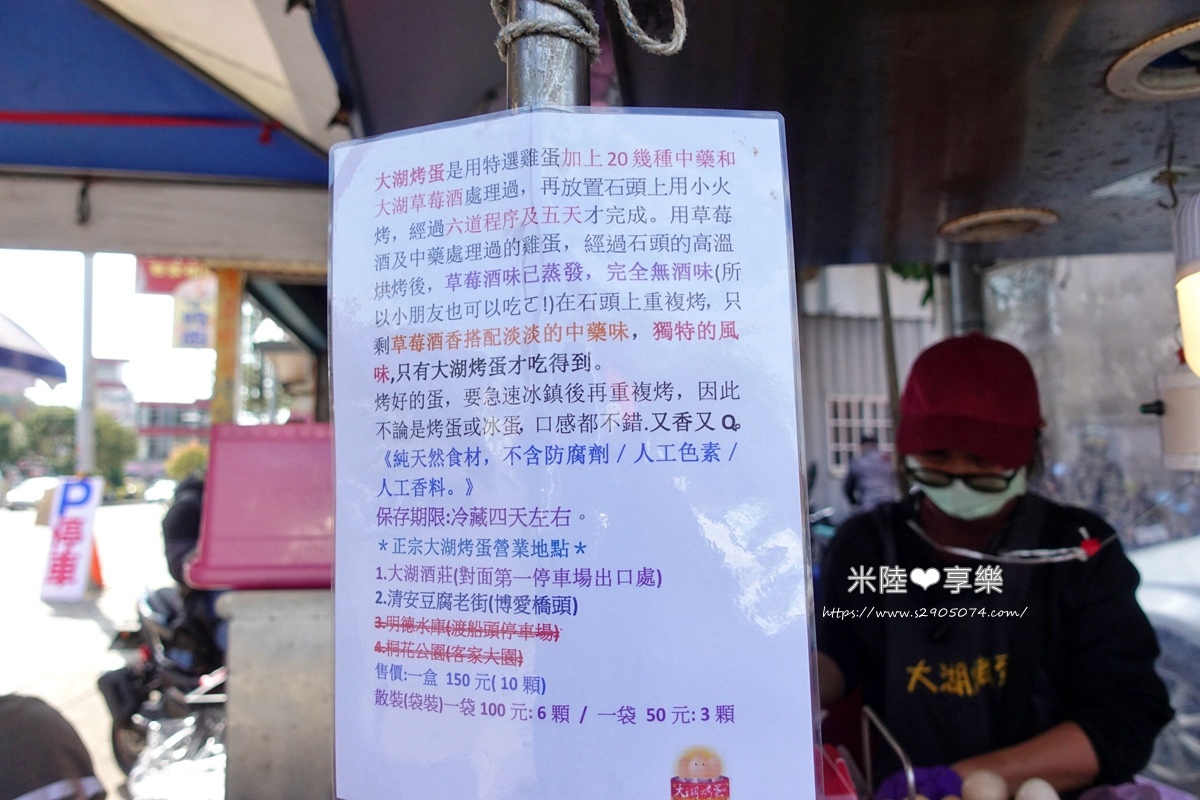 大湖烤蛋是用特選雞蛋加上 20 幾種中藥和
大湖草莓酒處理過，再放置石頭上用小火
烤，經過六道程序及五天才完成。用草莓
酒及中藥處理過的雞蛋，經過石頭的高溫
烘烤後，草莓酒味已蒸發，完全無酒味(所
以小朋友也可以吃ㄛ!)在石頭上重複烤，只
剩草莓酒香搭配淡淡的中藥味，獨特的風
味,只有大湖烤蛋才吃得到。
烤好的蛋，要急速冰鎮後再重複烤，因此
不論是烤蛋或冰蛋, 口感都不錯.又香又 Q。
《純天然食材，不含防腐劑 / 人工色素 /
人工香料。》
保存期限:冷藏四天左右。
＊正宗大湖烤蛋營業地點＊
1.大湖酒莊(對面第一停車場出口處)
2.清安豆腐老街(博愛橋頭)
3.明德水庫(渡船頭停車場)
4.桐花公園(客家大園)
售價:一盒 150 元( 10 顆)
散裝(袋裝)一袋 100 元: 6 顆 / 一袋 50 元: 3 顆
大湖烤蛋
P
停車
米陸❤享樂
https://www.s2905074.com/
大湖烤蛋